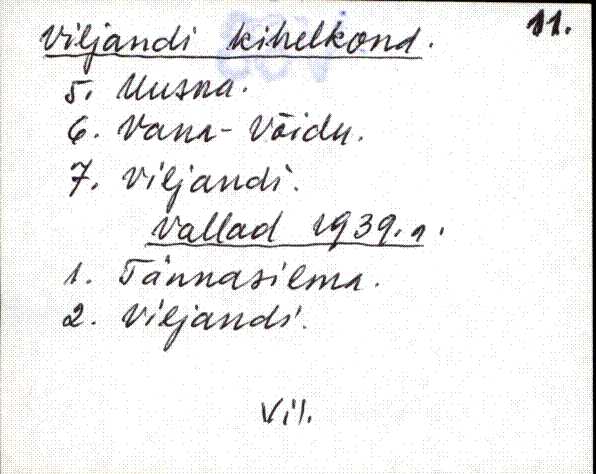 Viljandi kihelkond. 11.
5. Uusna.
6. Vana-Võidu.
7. Viljandi.
Vallad 1939. a.
1. Tännassilma.
2. Viljandi.
Vil.